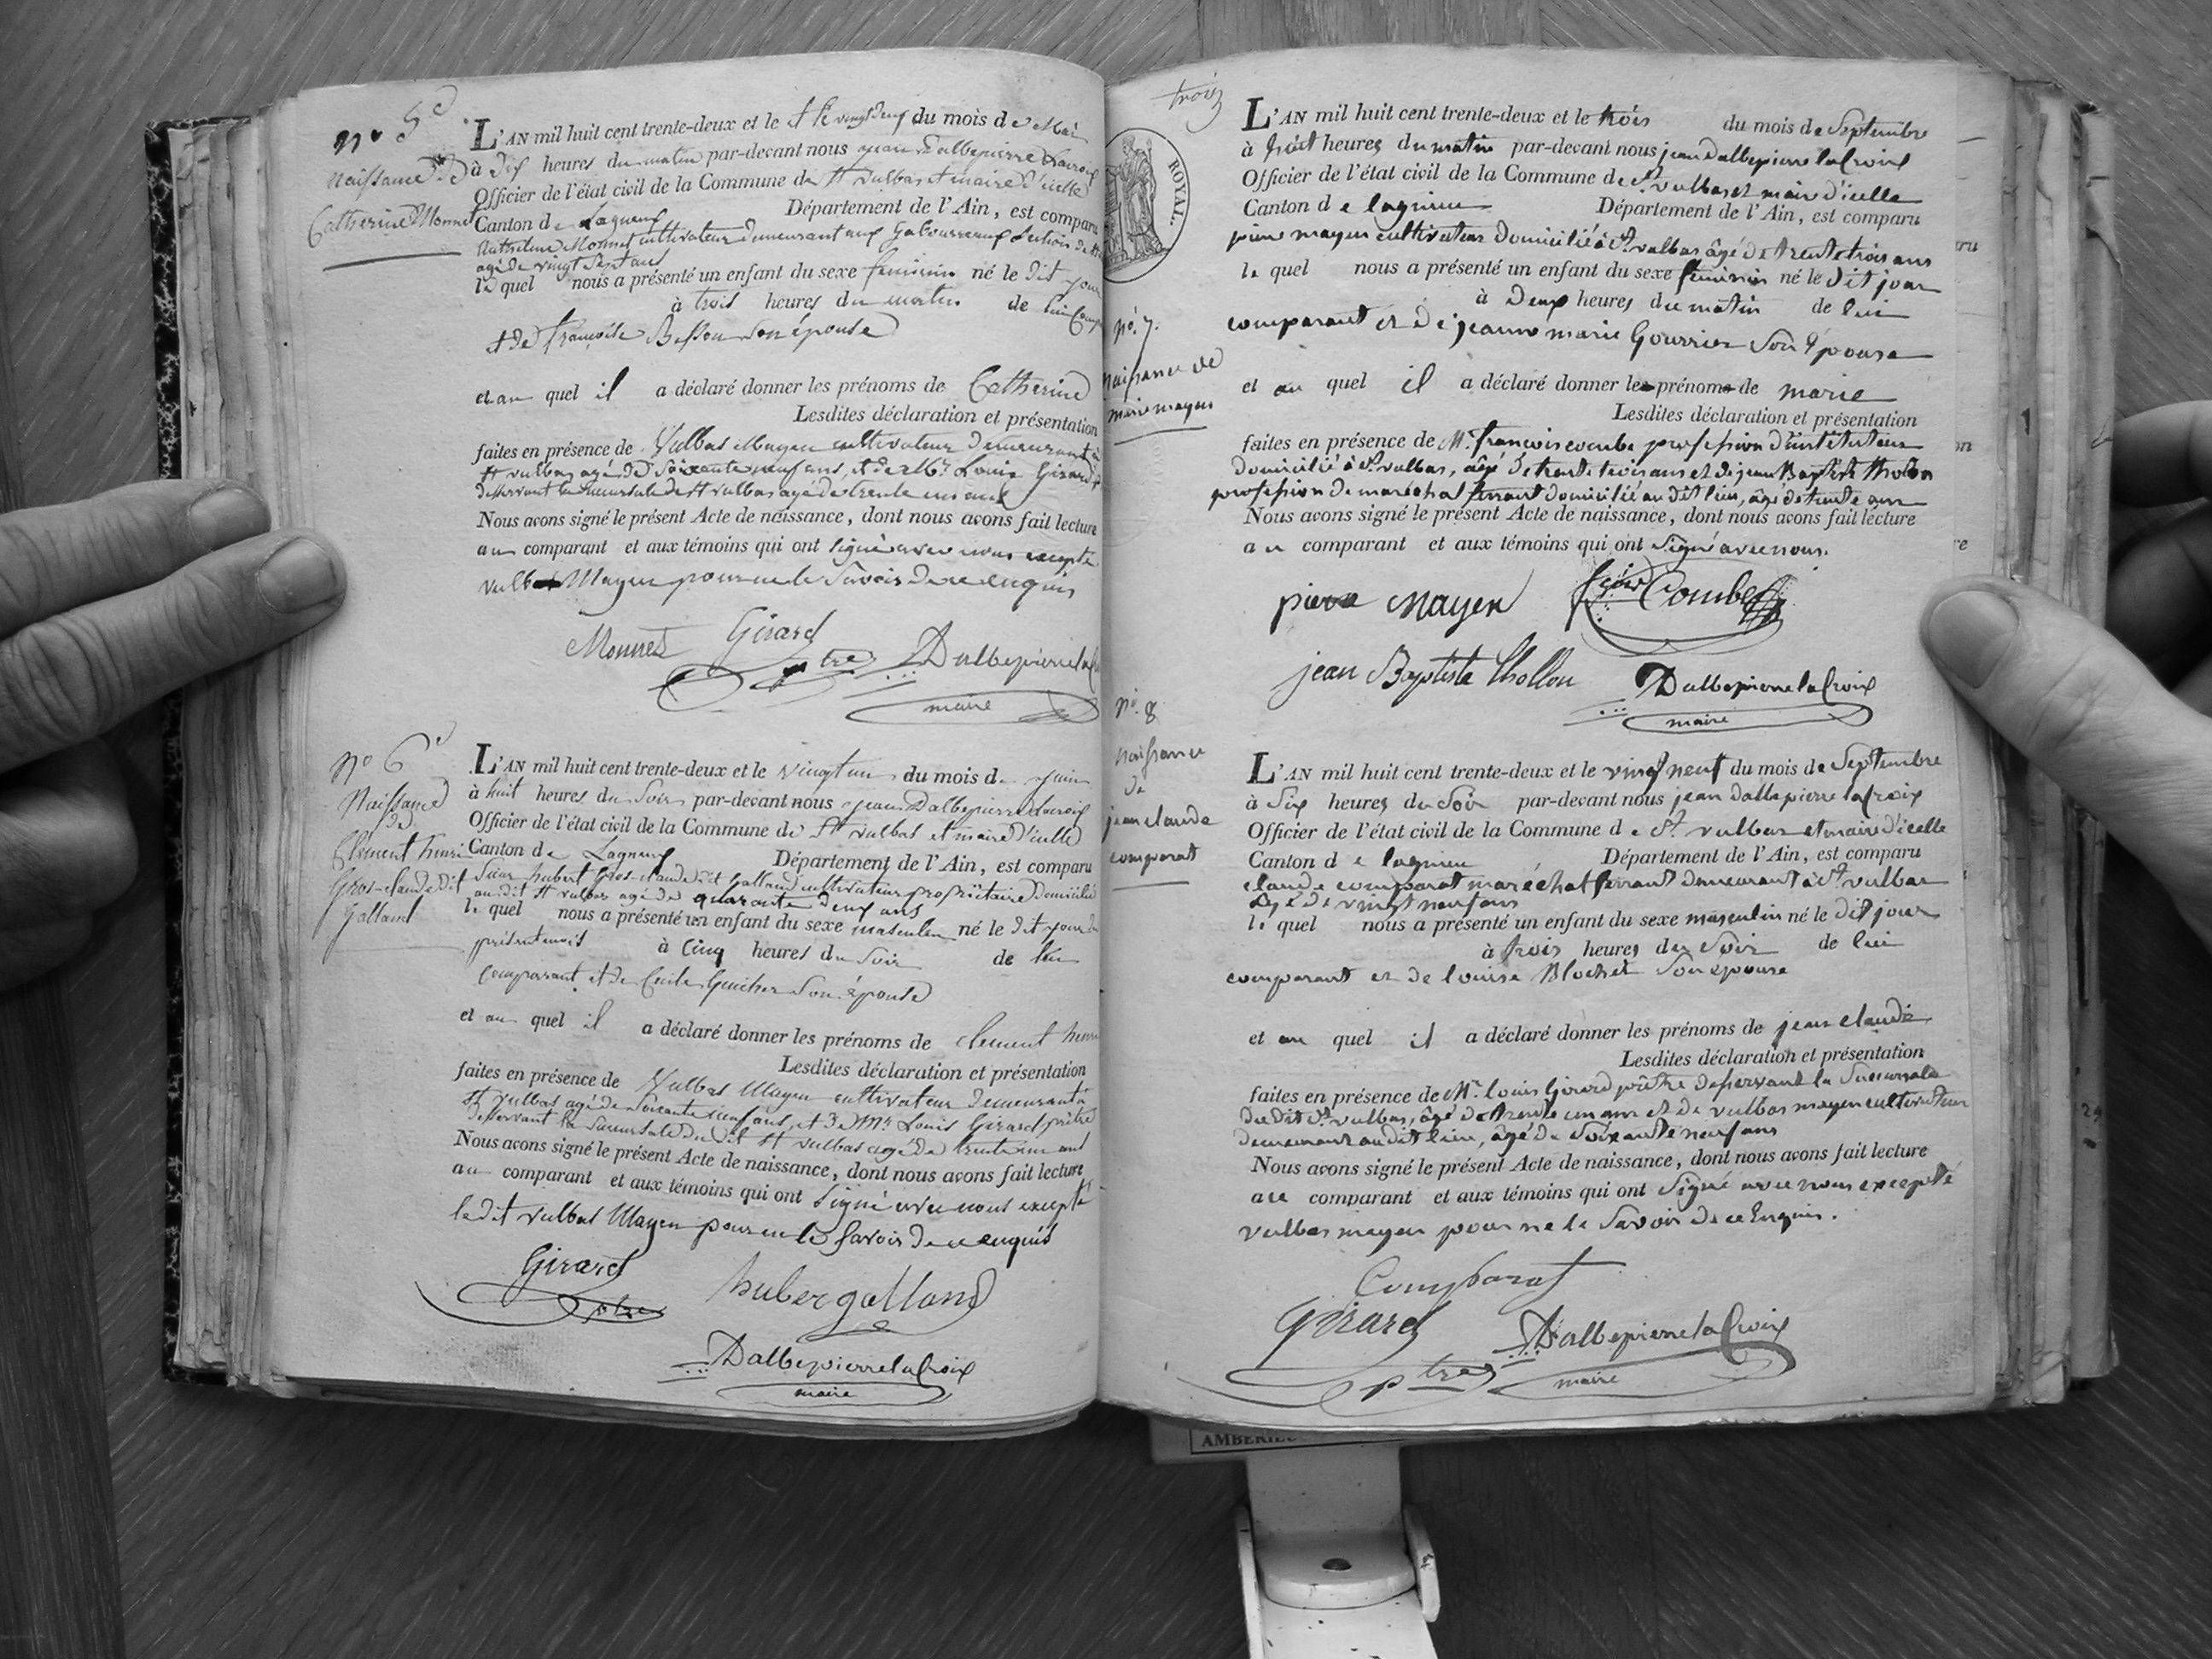 nº 5e
Naissance de
Catherine Monnet
L'AN mil huit cent trente-deux et le et le vingt neuf du mois de Mai
à dix heures du matin par-devant nous jean Dalbepierre Lacroix
Officier de l'état civil de la Commune de St vulbas et maire d'icelle
Canton de Lagneux Département de l'Ain, est comparu
Monnet cultivateur demeurant aux Gaboureaux Section de
agé de vingt Sept ans
le quel nous a présenté un enfant du sexe feminin né le dit jour
à trois heures du matin de lui
et de françoise Besson son épouse
et au quel il a déclaré donner les prénoms de Catherine
Lesdites déclaration et présentation
faites en présence de Vulbas Mayen cultivateur demeurant à
St vulbas agé de Soixante neuf ans, et de Mr. Louis Girard
desservant la Succursale de St vulbas agé de trente un ans
Nous avons signé le présent Acte de naissance, dont nous avons fait lecture
au comparant et aux témoins qui ont signé avec nous excepté
vulbas Mayen pour ne le Savoir de ce enquis
Monnet Girard ptre Dalbepierrela
maire
nº 6e
Naissance
de
Clement henri
Gros-claude dit
Galland
L'AN mil huit cent trente-deux et le vingt un du mois de juin
à huit heures du Soir par-devant nous jean Dalbepierre Lacroix
Officier de l'état civil de la Commune de St vulbas et maire d'icelle
Canton de Lagneux Département de l'Ain, est comparu
Sieur hubert Gros-claude dit Galland cultivateur propriétaire domicilié
au dit St vulbas agé de quarante deux ans
le quel nous a présenté un enfant du sexe masculin né le dit jour du
présent mois à cinq heures du Soir de lui
comparant et de Cecile Guicher Son épouse
et au quel il a déclaré donner les prénoms de clement henri
Lesdites déclaration et présentation
faites en présence de Vulbas Mayen cultivateur demeurant à
St vulbas agé de Soixante neuf ans, et de Mr Louis Girard prêtre
desservant la Succursale du dit St vulbas agé de trente un ans
Nous avons signé le présent Acte de naissance, dont nous avons fait lecture
au comparant et aux témoins qui ont Signé avec nous excepté
le dit vulbas Mayen pour ne le Savoir de ce enquis
Girard ptre huber galland
Dalbepierrelacroix
maire
trois
ROYAL.
nº. 7.
naissance de
marie mayen
L'AN mil huit cent trente-deux et le trois du mois de Septembre
à huit heures du matin par-devant nous jean dalbepierre lacroix
Officier de l'état civil de la Commune de St. vulbas et maire d'icelle
Canton de lagnieu Département de l'Ain, est comparu
pierre mayen cultivateur domicilié à St. vulbas âgé de trente trois ans
le quel nous a présenté un enfant du sexe feminin né le dit jour
à deux heures du matin de lui
comparant et de jeanne marie Gourrier Son épouse
et au quel il a déclaré donner les prénoms de marie
Lesdites déclaration et présentation
faites en présence de Mr. françois combe profession d'instituteur
domicilié à St. vulbas, âgé de trente trois ans et de jean Baptiste thollon
profession de maréchal ferrant domicilié au dit lieu, âgé de trente ans
Nous avons signé le présent Acte de naissance, dont nous avons fait lecture
au comparant et aux témoins qui ont signé avec nous.
pierre mayen fçois Combe
jean Baptiste thollon Dalbepierrelacroix
maire
nº. 8
naissance
de
jean claude
comparat
L'AN mil huit cent trente-deux et le vingt neuf du mois de Septembre
à Six heures du Soir par-devant nous jean dalbepierre lacroix
Officier de l'état civil de la Commune de St. vulbas et maire d'icelle
Canton de lagnieu Département de l'Ain, est comparu
claude comparat maréchal ferrant demeurant à St. vulbas
agé de vingt neuf ans
le quel nous a présenté un enfant du sexe masculin né le dit jour
à trois heures du Soir de lui
comparant et de louise Blochet Son épouse
et au quel il a déclaré donner les prénoms de jean claude
Lesdites déclaration et présentation
faites en présence de Mr. louis Girard prêtre desservant la Succursale
du dit St. vulbas, âgé de trente un ans et de vulbas mayen cultivateur
demeurant au dit lieu, âgé de Soixante neuf ans
Nous avons signé le présent Acte de naissance, dont nous avons fait lecture
au comparant et aux témoins qui ont Signé avec nous excepté
vulbas mayen pour ne le Savoir de ce Enquis.
Comparat
Girard ptre Dalbepierrelacroix
maire